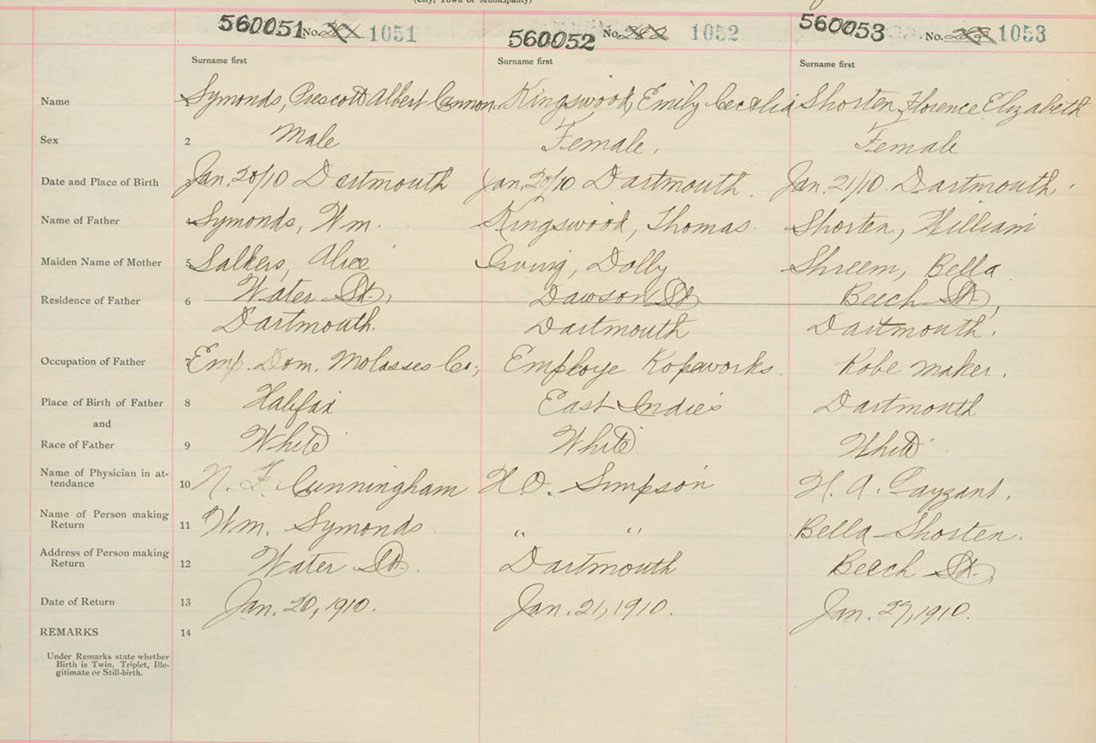 (City, Town or Municipality)
560051 No. 1051 560052 No. 1052 560053 No. 1053
Surname first Surname first Surname first
Name 1 Symonds, Prescott Albert Cannon. Kingswood, Emily Cecelia Shorten, Florence Elizabeth
Sex 2 Male Female. Female
Date and Place of Birth Jan. 20/10 Dartmouth Jan. 20/10 Dartmouth. Jan. 21/10. Dartmouth.
Name of Father 4 Symonds, Wm. Kingswood, Thomas. Shorten, William
Maiden Name of Mother 5 Salkers, Alice Irving, Dolly Shreem, Bella
Residence of Father 6 Water St., Dawson St. Beech St.,
Dartmouth. Dartmouth Dartmouth.
Occupation of Father 7 Emp. Dom. Molasses Co., Employe Ropeworks. Robe maker.
Place of Birth of Father 8 Halifax East Indies Dartmouth
and
Race of Father 9 White White White
Name of Physician in at-
tendance 10 N. F. Cunningham H.O. Simpson H. A. Payzant.
Name of Person making
Return 11 Wm. Symonds " " Bella Shorten.
Address of Person making
Return 12 Water St. Dartmouth Beech St.
Date of Return 13 Jan. 20, 1910. Jan. 21, 1910. Jan. 27, 1910.
REMARKS 14
Under Remarks state whether
Birth is Twin, Triplet, Ille-
gitimate or Still-birth.